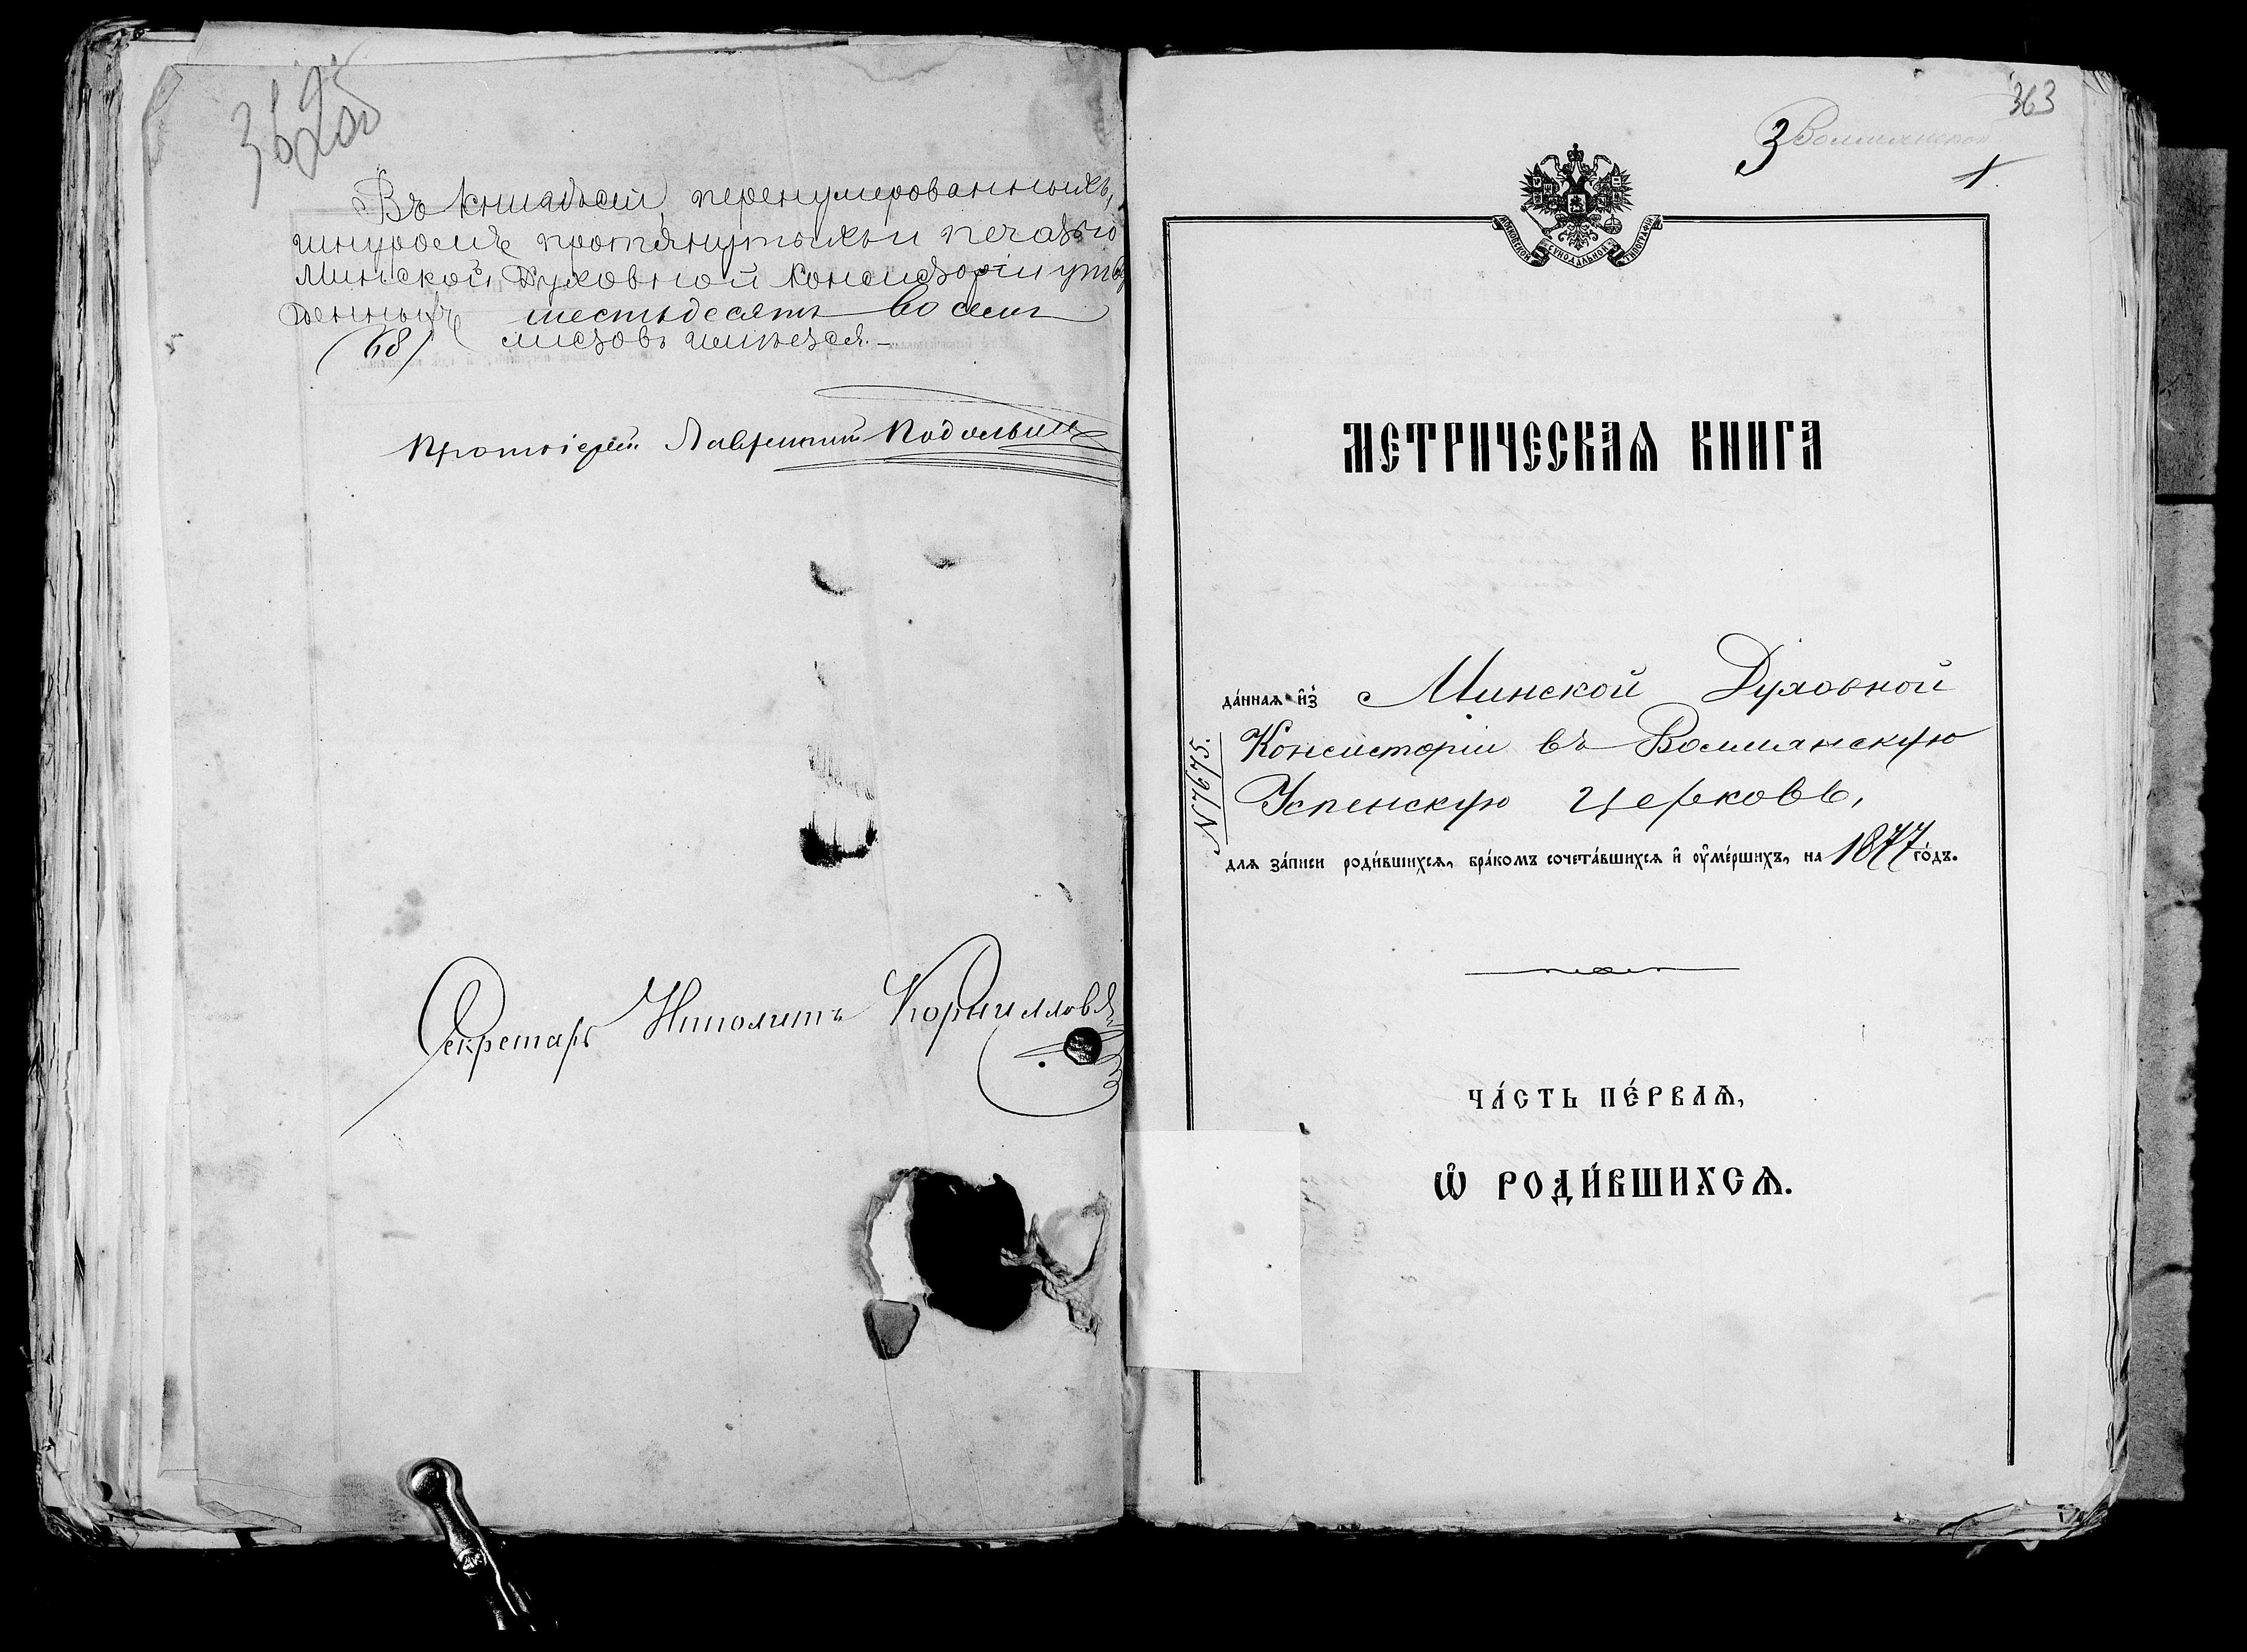 362об
Въ книгѣ сей перенумерованныхъ,
шнуромъ протянутыхъ и печатью
Минской Духовной Консисторіи утвер
жденныхъ шестьдесятъ восемь
(68) листовъ имѣется.—
Протоіерей Лаврентій
Секретарь Иполитъ Корниловъ
363
3 Волмянской
1
МОСКОВСКОЙ СѴНОДАЛЬНОЙ ТИПОГРАФІИ
МЕТРИЧЕСКАѦ КНИГА
да́ннаѧ и҆з̾ Минской Духовной
Консисторіи въ Волмянскую
Успенскую церковь,
№ 7675.
длѧ за́писи роди́вшихсѧ, бра́комъ сочета́вшихсѧ и҆ ᲂу҆ме́ршихъ, на 1877 го́дъ.
ЧА́СТЬ ПЕ́РВАѦ,
Ѡ҆ РОДИ́ВШИХСѦ.